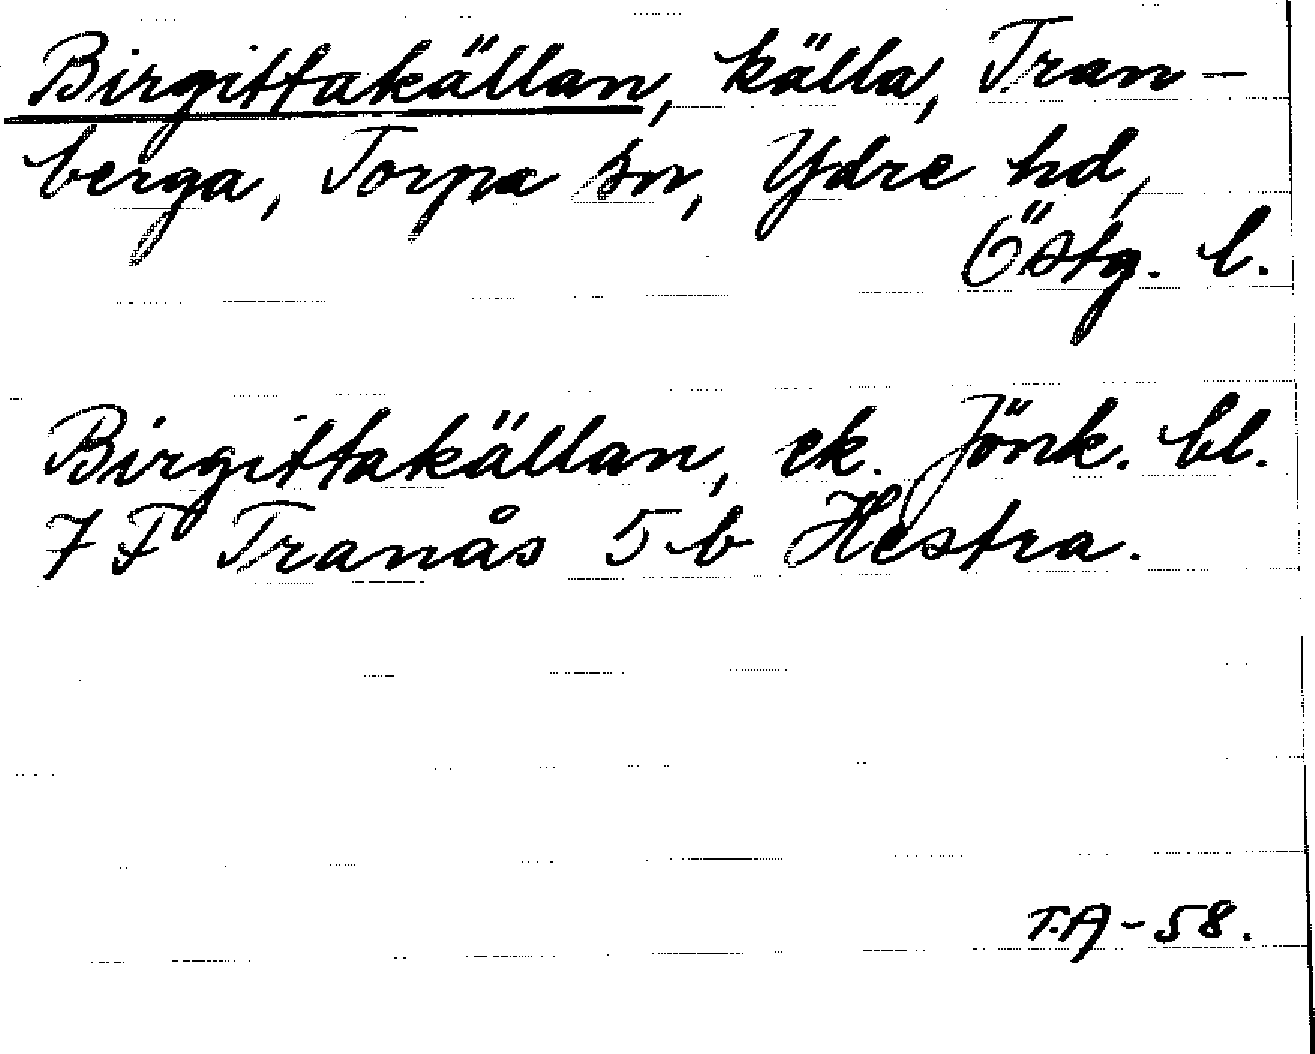 Birgittakällan, källa, Tran-
berga, Torpa sn, Ydre hd,
Östg. l.
Birgittakällan, ek. Jönk. bl.
7 F Tranås 5 b Hestra.
T.A-58.